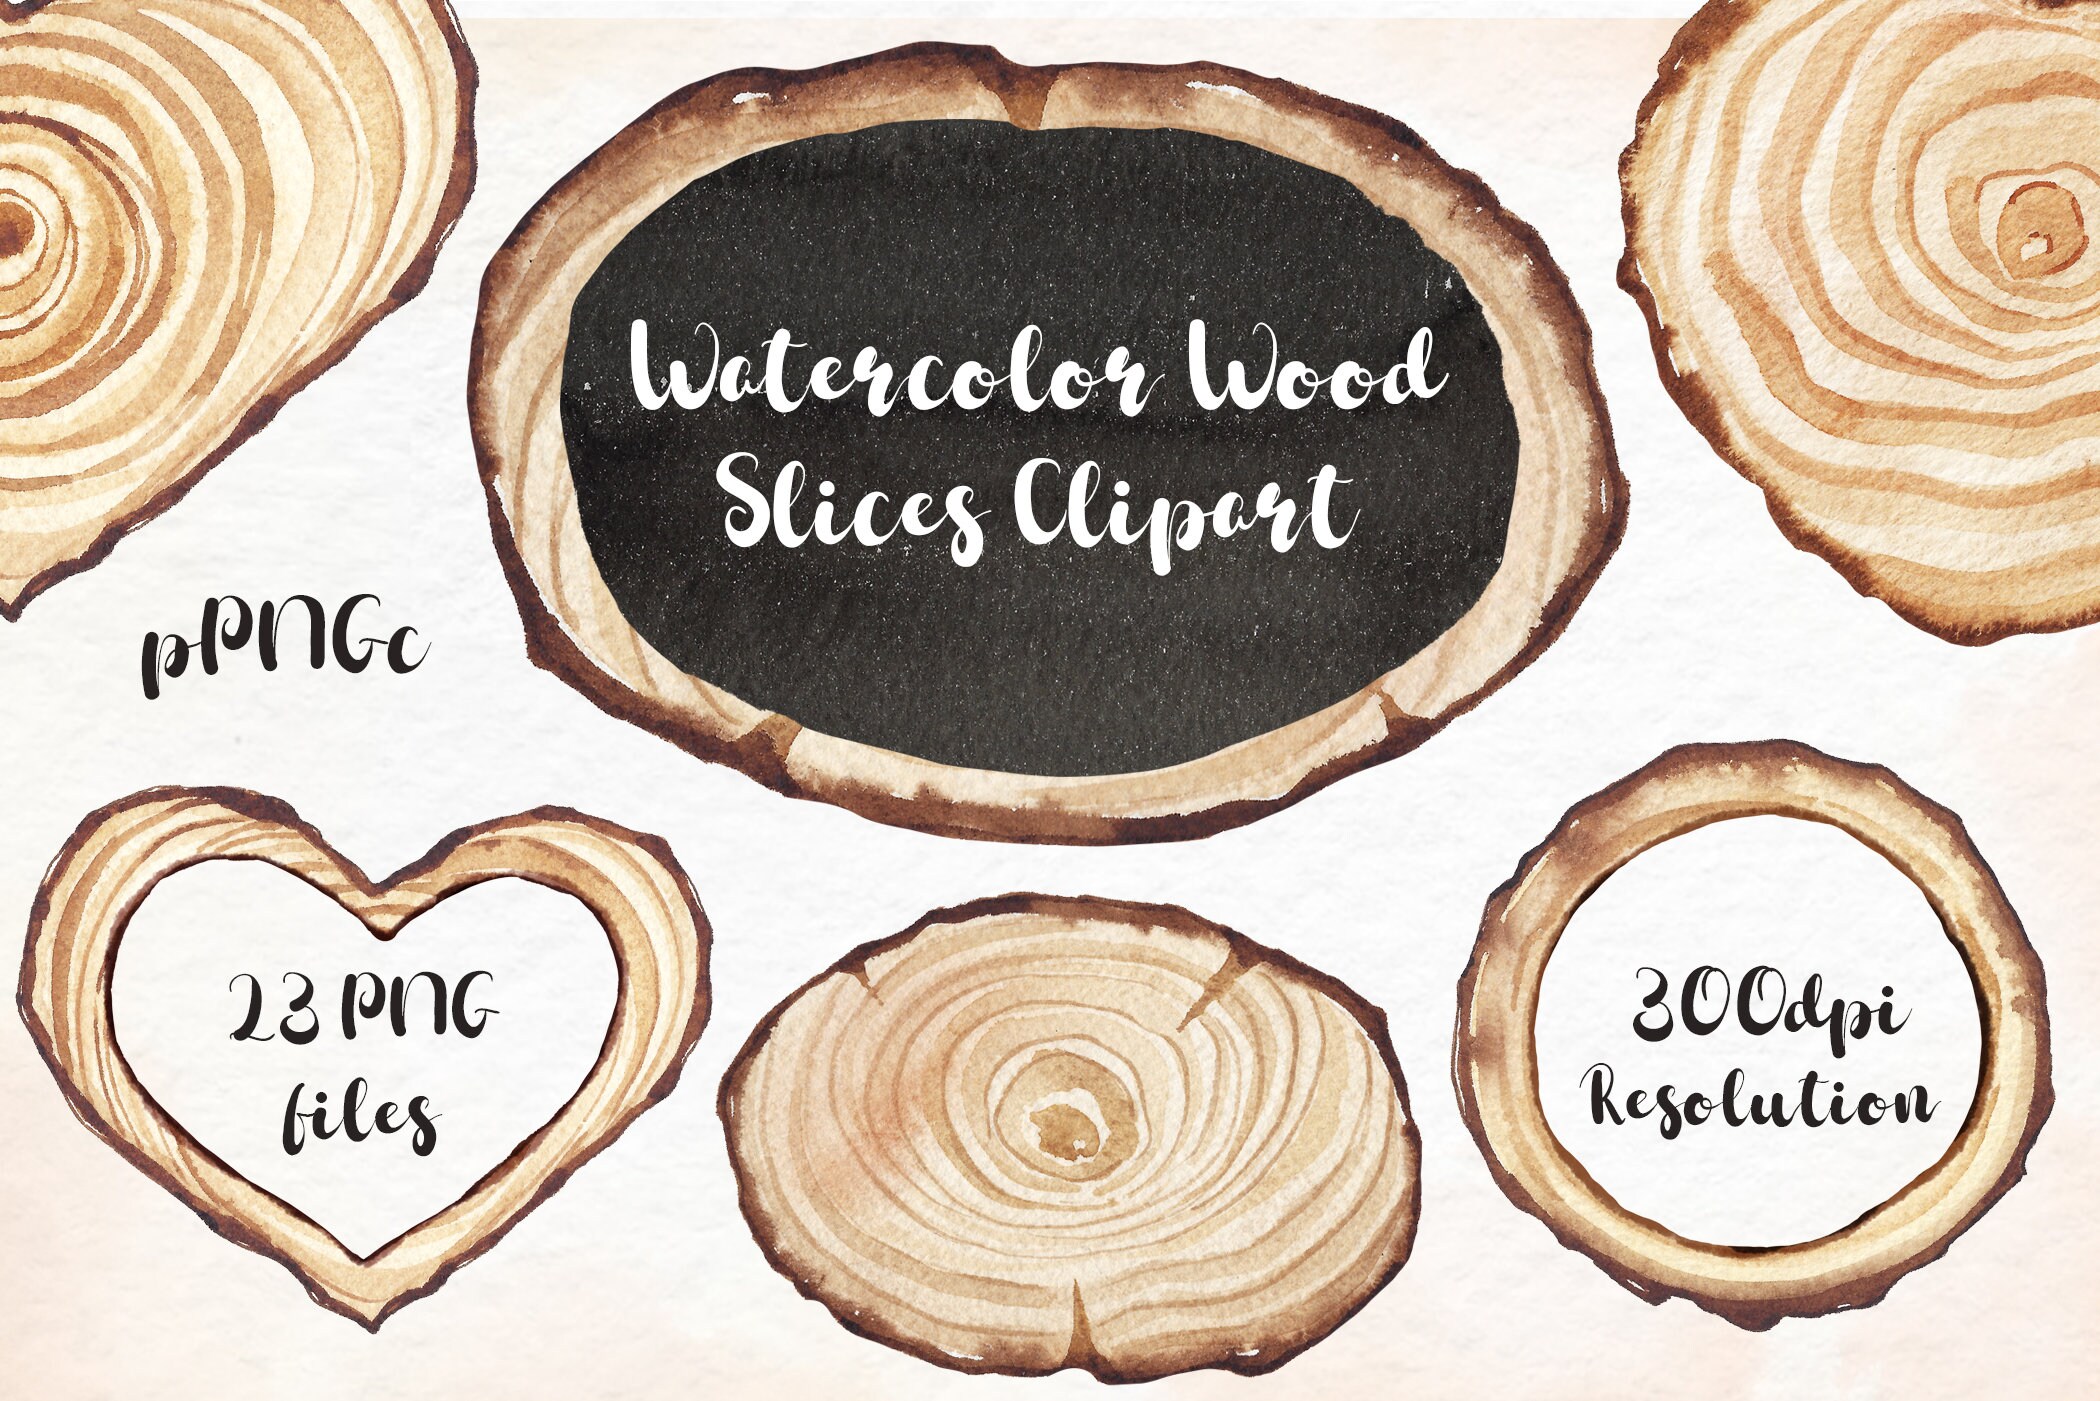 Watercolor Wood
Slices Clipart
pPNGc
23 PNG
files
300dpi
Resolution